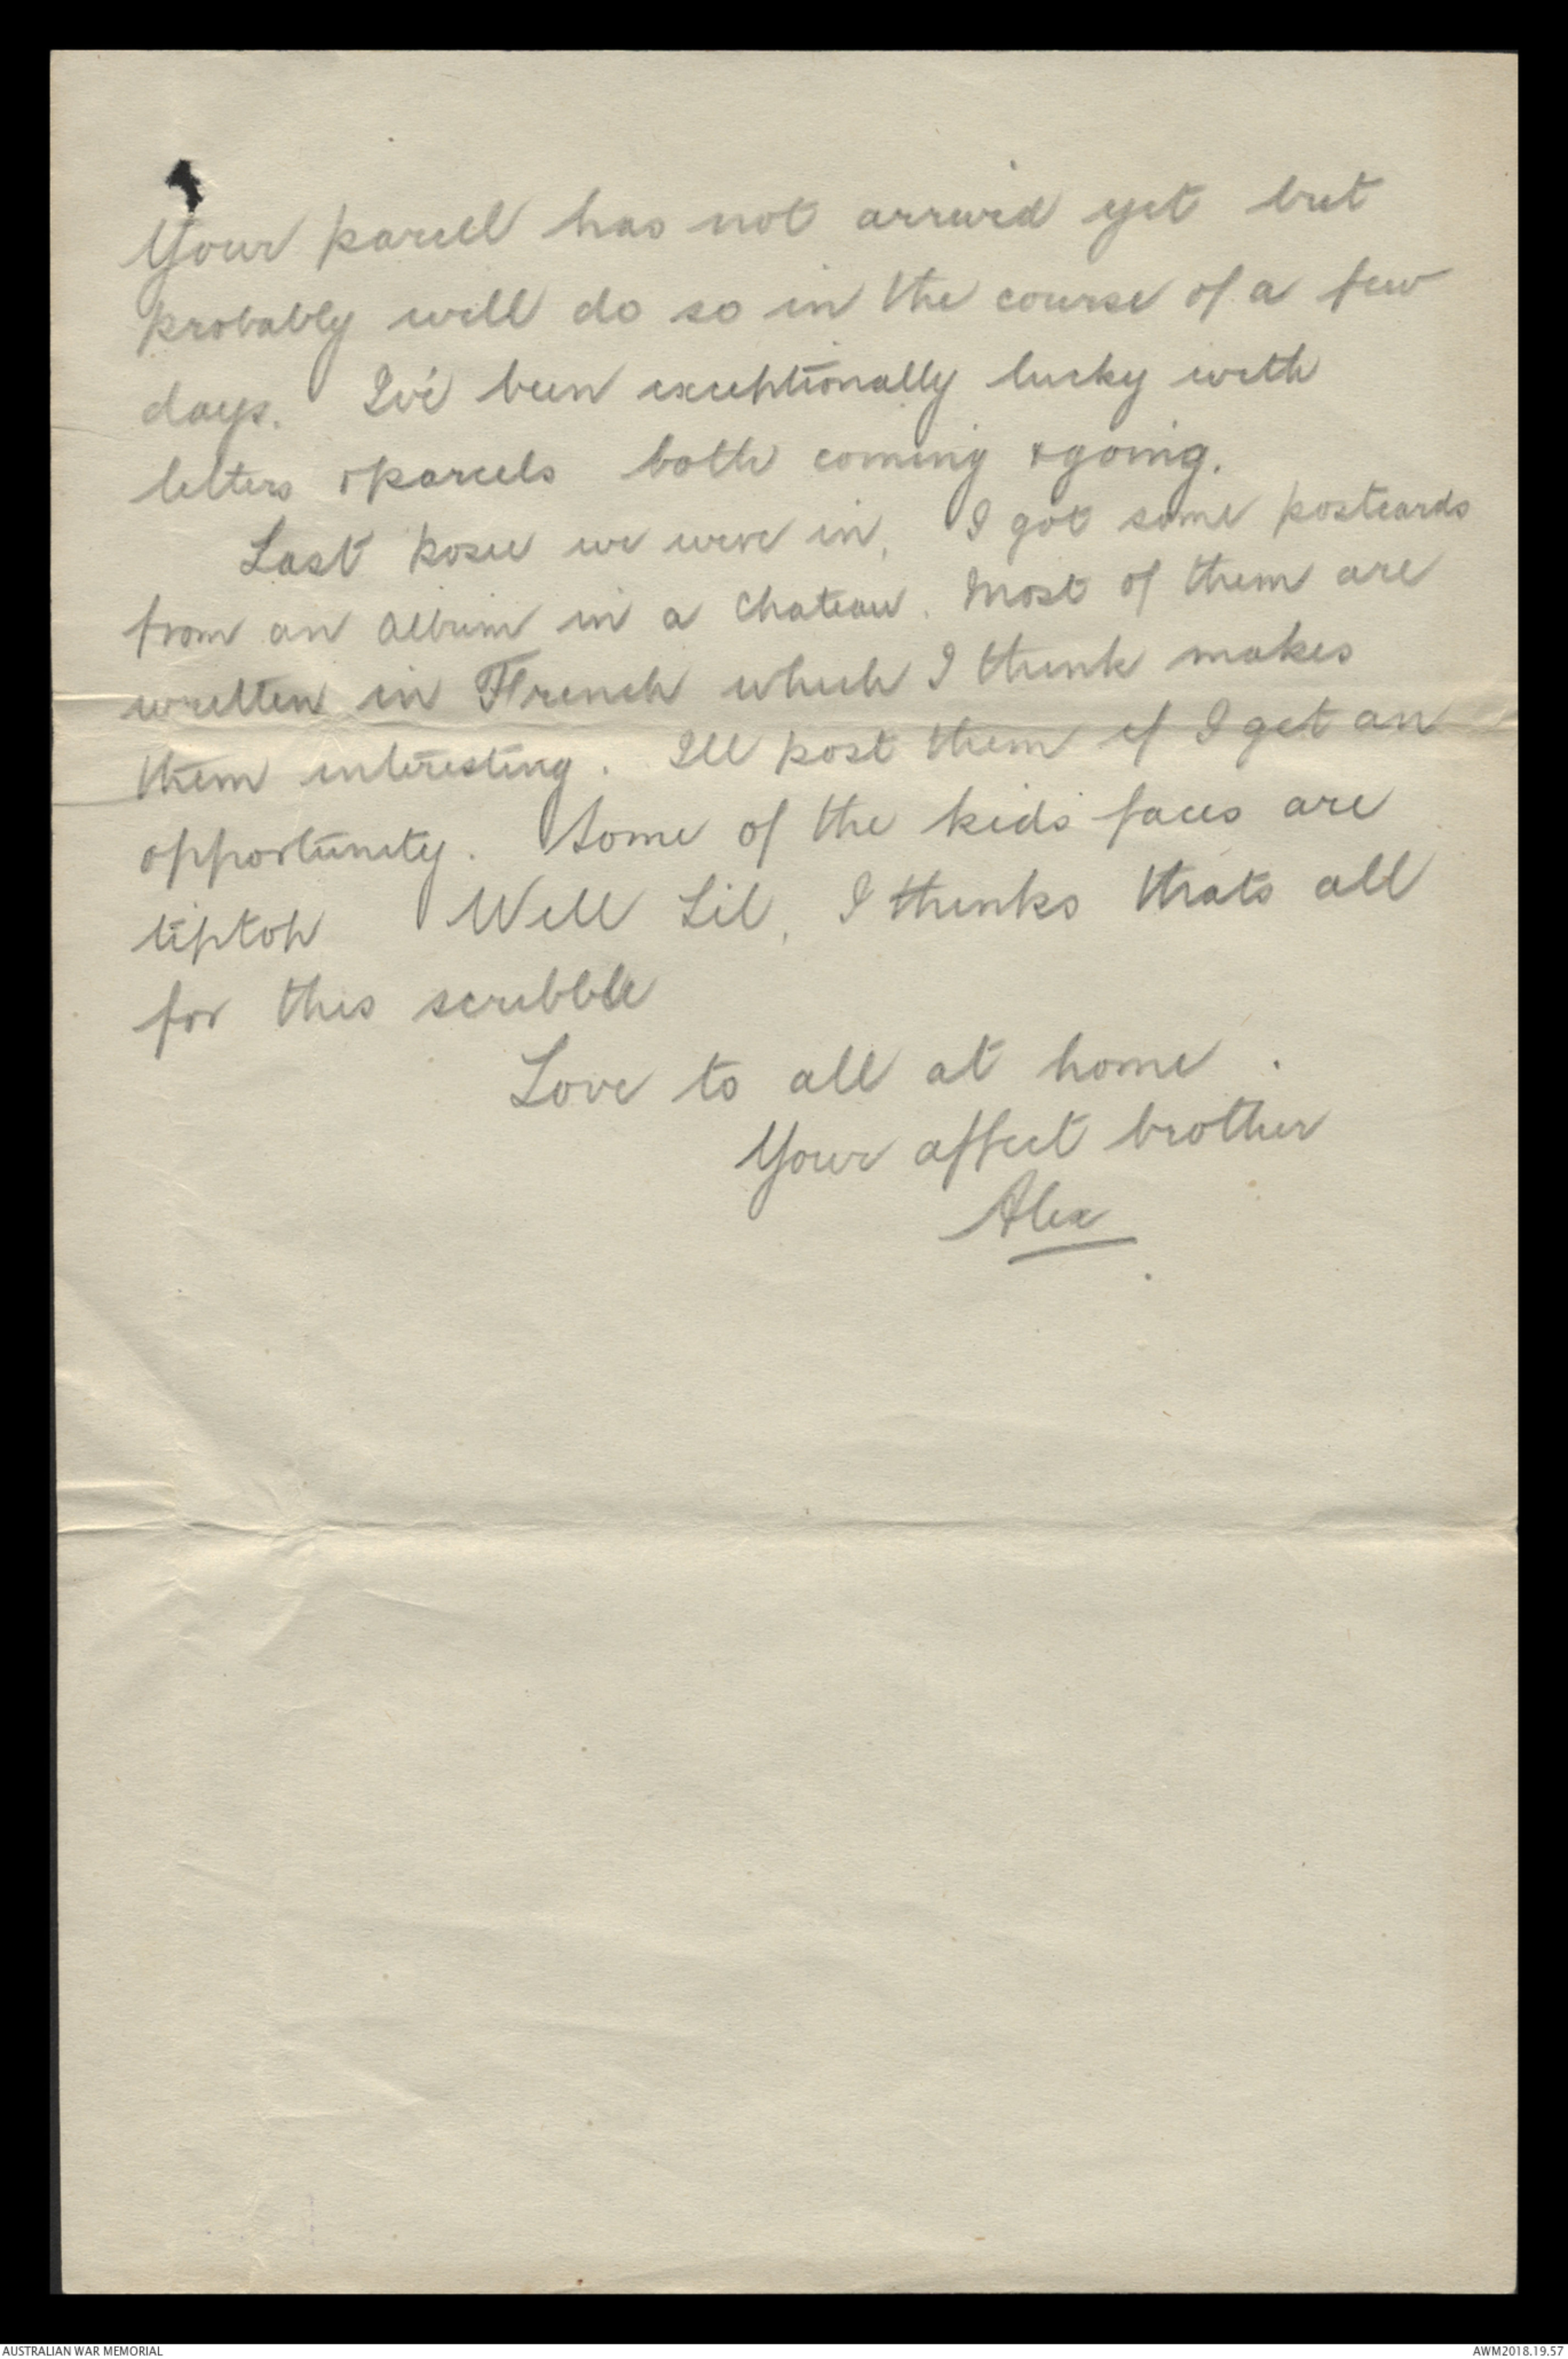 Your parcel has not arrived yet but
probably will do so in the course of a few
days. I've been exceptionally lucky with
letters & parcels both coming & going.
Last posie we were in, I got some postcards
from an album in a Chateau. Most of them are
written in French which I think makes
them interesting. Ill post them if I get an
opportunity. Some of the kids faces are
tiptop Well Lil, I thinks thats all
for this scribble
Love to all at home.
Your affect brother
Alex
AUSTRALIAN WAR MEMORIAL AWM2018.19.57